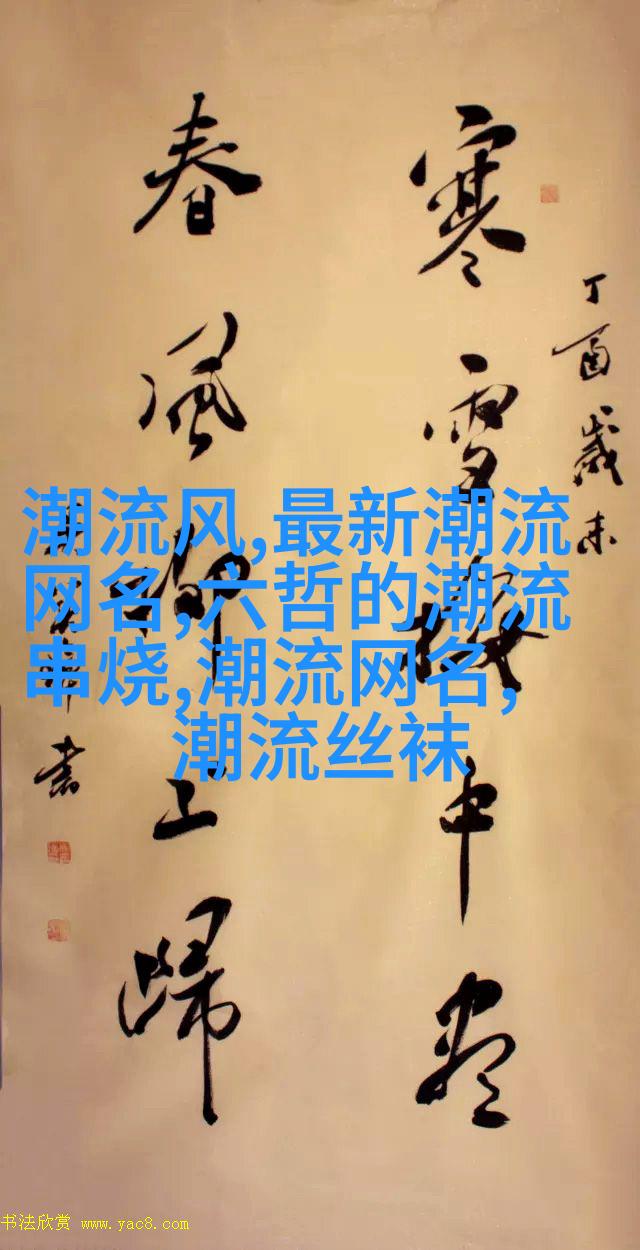 丁酉歲末
寒雪梅中尽
春風柳上歸
書
潮流风,最新潮流
网名,六哲的潮流
串烧,潮流网名,
潮流丝袜
书法欣赏 www.yac8.com